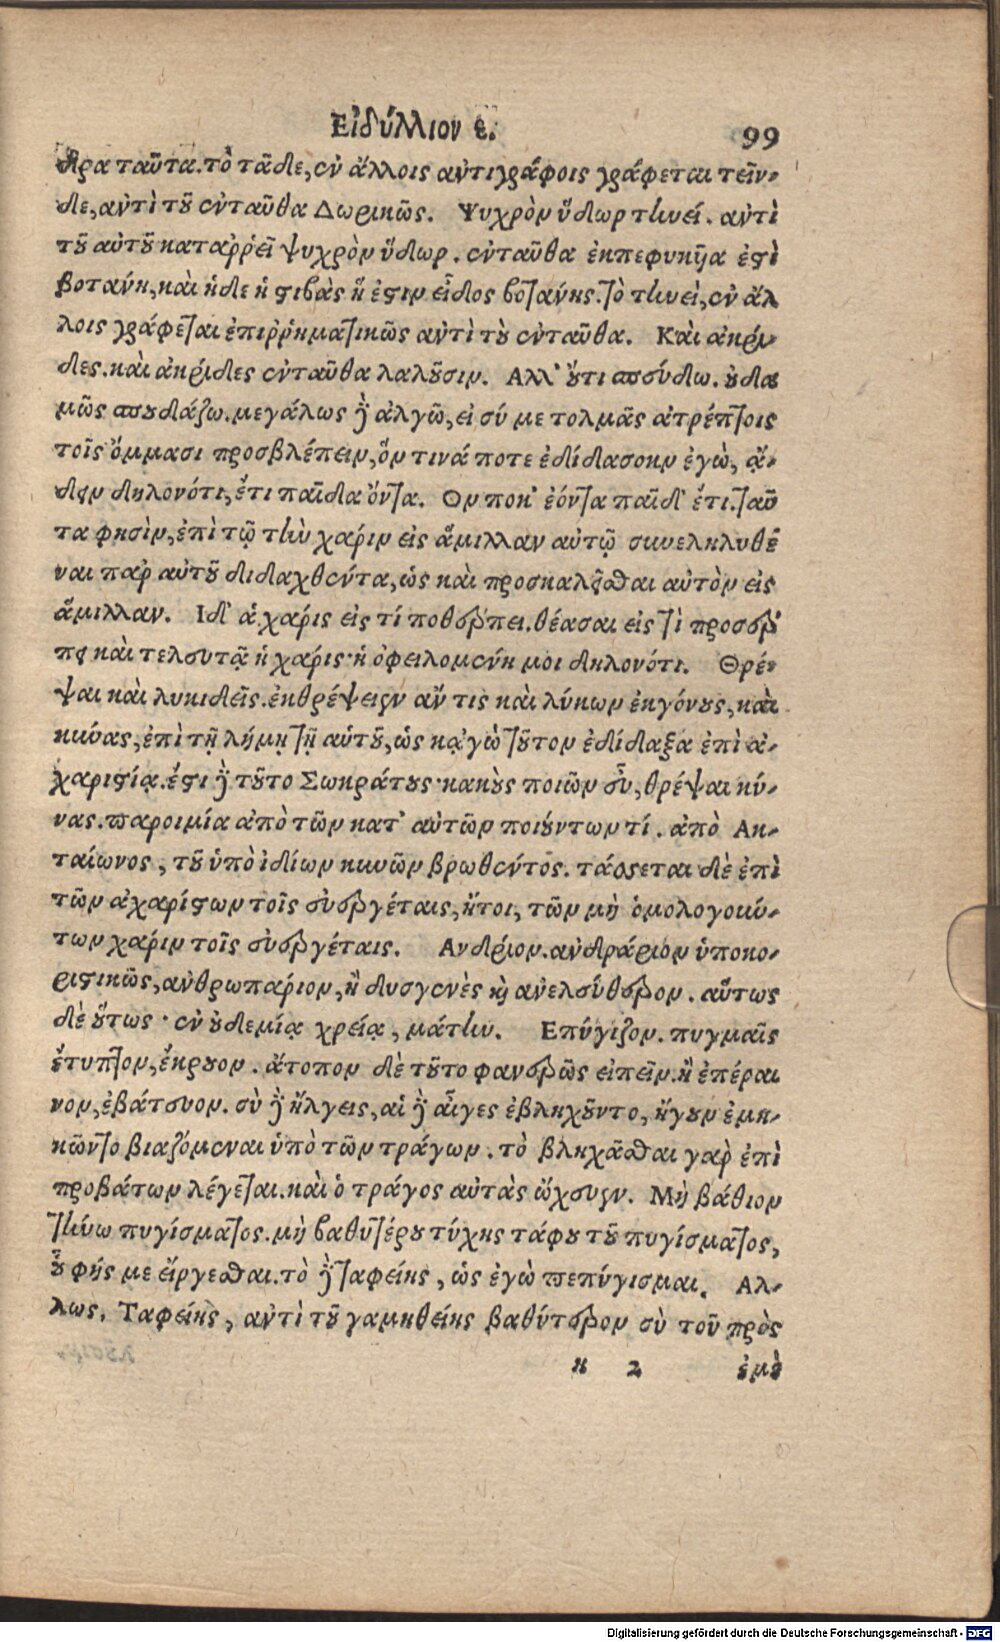 Εἰδύλλιον ε. 99
δρα ταῦτα. τὸ τᾶδε, ἐν ἄλλοις ἀντιγράφοις γράφεται τεῖν-
δε, ἀντὶ τοῦ ἐνταῦθα Δωρικῶς. Ψυχρὸν ὕδωρ τηνεί. ἀντὶ
τοῦ αὐτοῦ καταῤῥεῖ ψυχρὸν ὕδωρ. ἐνταῦθα ἐκπεφυκῆα ἐστὶ
βοτάνη, καὶ ἡδε ἡ στιβὰς ἥ ἐστιν εἶδος βοτάνης. τὸ τηνεὶ, ἐν ἄλ
λοις γράφεται ἐπιῤῥηματικῶς ἀντὶ τὸυ ἐνταῦθα. Καὶ ἀκρί-
δες. καὶ ἀκρίδες ἐνταῦθα λαλοῦσιν. Αλλ' ὄυτι σπεύδω. ὀυδα
μῶς σπουδάζω. μεγάλως γὰρ ἀλγῶ, εἰ σύ με τολμᾶς ἀτρέπτοις
τοῖς ὄμμασι προσβλέπειν, ὅν τινά ποτε ἐδίδασκον ἐγὼ, ᾄ-
δειν δηλονότι, ἔτι παῖδα ὄντα. Ον ποκ' ἐόντα παῖδ' ἔτι. ταῦ
τα φησὶν, ἐπὶ τῷ τὴν χάριν εἰς ἅμιλλαν αὐτῷ συνεληλυθέ
ναι παρ αὐτοῦ διδαχθέντα, ὡς καὶ προσκαλεῖσθαι αὐτὸν εἰς
ἅμιλλαν. Ιδ' ἁ χάρις εἰς τί ποθέρπει. θέασαι εἰς τὶ προσέρ
πει καὶ τελευτᾷ ἡ χάρις· ἡ ὀφειλομένη μοι δηλονότι. Θρέ-
ψαι καὶ λυκιδεῖς. ἐκθρέψειεν ἄν τις καὶ λύκων ἐκγόνους, καὶ
κύνας, ἐπὶ τῇ λύμῃ τῇ αὑτοῦ, ὡς κᾀγὼ τοῦτον ἐδίδαξα ἐπὶ ἀ-
χαριστίᾳ. ἔστι γὰρ τοῦτο Σωκράτους· κακὸυς ποιῶν εὖ, θρέψαι κύ-
νας. παροιμία ἀπὸ τῶν κατ' αὑτῶν ποιούντων τί. ἀπὸ Ακ-
ταίωνος, τοῦ ὑπὸ ἰδίων κυνῶν βρωθέντος. τάσσεται δὲ ἐπὶ
τῶν ἀχαρίστων τοῖς εὐεργέταις, ἤτοι, τῶν μὴ ὁμολογούν-
των χάριν τοῖς εὐεργέταις. Ανδρίον. ἀνδράριον ὑποκο-
ριστικῶς, ἀνθρωπάριον, ἢ δυσγενὲς καὶ ἀνελεύθερον. αὔτως
δὲ ὅυτως· ἐν οὐδεμίᾳ χρείᾳ, μάτην. Επύγιζον. πυγμαῖς
ἔτυπτον, ἔκρουον. ἄτοπον δὲ τοῦτο φανερῶς εἰπεῖν. ἢ ἐπέραι
νον, ἐβάτευον. σὺ γὰρ ἤλγεις, αἱ γὰρ αἶγες ἐβληχοῦντο, ἤγουν ἐμη-
κῶντο βιαζόμεναι ὑπὸ τῶν τράγων. τὸ βληχᾶσθαι γαρ ἐπὶ
προβάτων λέγεται. καὶ ὁ τράγος αὐτὰς ὤχευεν. Μὴ βάθιον
τήνω πυγίσματος. μὴ βαθυτέρου τύχης τάφου τοῦ πυγίσματος,
οὗ φής με εἴργεσθαι. τὸ γὰρ ταφείης, ὡς ἐγὼ πεπύγισμαι. Αλ-
λως. Ταφείης, ἀντὶ τοῦ γαμηθείης βαθύτερον σὺ τοῦ πρὸς
κ 2 ἐμὲ
Digitalisierung gefördert durch die Deutsche Forschungsgemeinschaft - DFG